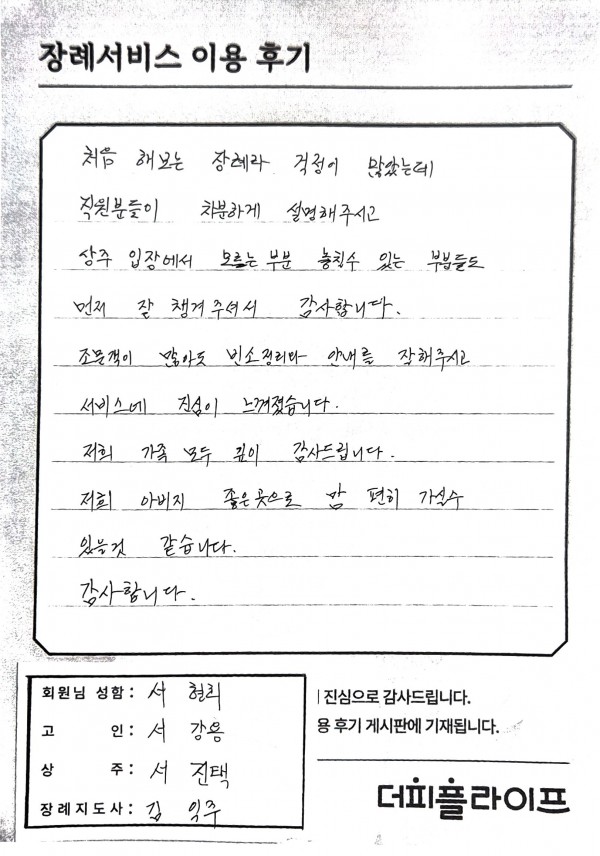 장례서비스 이용 후기
처음 해보는 장례라 걱정이 많았는데
직원분들이 차분하게 설명해주시고
상주 입장에서 모르는 부분 놓칠수 있는 부분들도
먼저 잘 챙겨주셔서 감사합니다.
조문객이 많아도 빈소정리와 안내를 잘해주시고
서비스에 진심이 느껴졌습니다.
저희 가족 모두 깊이 감사드립니다.
저희 아버지 좋은곳으로 맘 편히 가실수
있을것 같습니다.
감사합니다.
회원님 성함 : 서 현희
고 인 : 서 강용
상 주 : 서 진택
장례지도사 : 김 익주
진심으로 감사드립니다.
용 후기 게시판에 기재됩니다.
더피플라이프